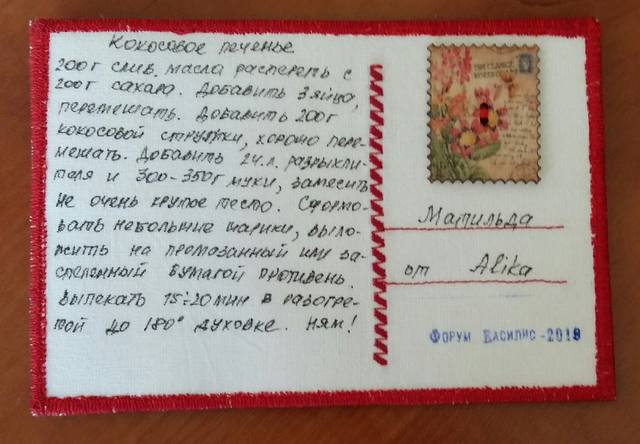 Кокосовое печенье
200г слив. масла растереть с
200г сахара. Добавить 3 яйца,
перемешать. Добавить 200г
кокосовой стружки, хорошо пере-
мешать. Добавить 2ч.л. разрыхли-
теля и 300-350г муки, замесить
не очень крутое тесто. Сформо-
вать небольшие шарики, выло-
жить на промазанный или за-
стеленный бумагой противень.
Выпекать 15÷20мин в разогре-
той до 180° духовке. Ням!
Матильда
от Alika
Форум Василис-2018